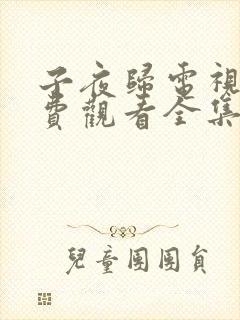 子夜歸電視
費觀看全集
兒童團團員